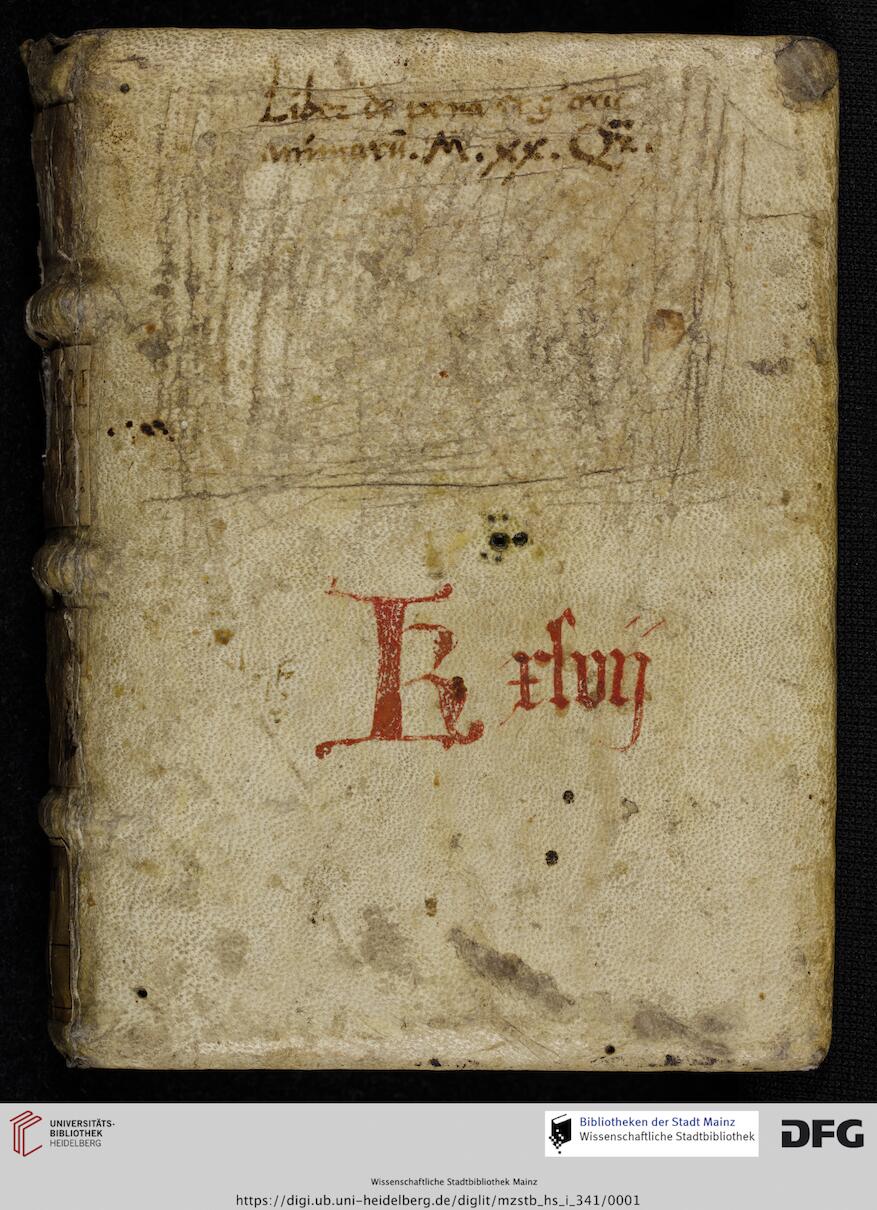 Liber de pena et g
animarū. M. xx. Qr̄.
K xlvij
UNIVERSITÄTS-
BIBLIOTHEK
HEIDELBERG
Bibliotheken der Stadt Mainz
Wissenschaftliche Stadtbibliothek
DFG
Wissenschaftliche Stadtbibliothek Mainz
https://digi.ub.uni-heidelberg.de/diglit/mzstb_hs_i_341/0001